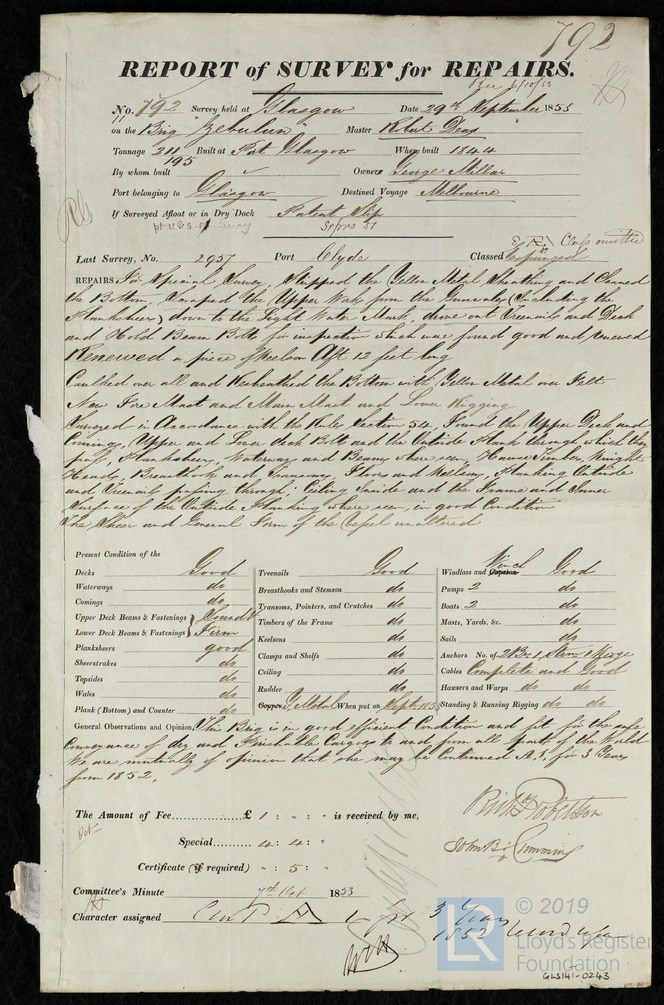 792
REPORT of SURVEY for REPAIRS.
Rec 6/10/53
No. 792 Survey held at Glasgow Date 29th September 1853
on the Brig "Zebulun" Master Robert Deas
Tonnage 211 Built at Port Glasgow When built 1844
195
By whom built Owners George Millar
Port belonging to Glasgow Destined Voyage Melbourne
If Surveyed Afloat or in Dry Dock Patent Slip
Last Survey, No. 2957 Port Clyde Classed Expunged
Class omitted
REPAIRS, For Special Survey, Stripped the Yellow Metal Sheathing and Cleaned
the Bottom, Scraped the Upper Works from the Gunwales (Including the
Planksheer) down to the Light Water Mark, drove out Treenails and Deck
and Hold Beam Bolts for inspection which were found good and renewed
Renewed a piece of Keelson Aft 12 feet long
Caulked over all and Resheathed the Bottom with Yellow Metal over Felt
New Fore Mast and Main Mast and Lower Rigging
Surveyed in Accordance with the Rules Section 54, Found the Upper Deck and
Comings, Upper and Lower deck Bolts and the Outside Plank through which they
pass, Planksheers, Waterways and Beams where seen, Hawse Timbers, Knight
Heads, Breasthooks and Transoms, Floors and Keelsons, Planking Outside
and Treenails passing through, Ceiling Inside and the Frame and Inner
Surface of the Outside Planking where seen, in good Condition
The Sheer and General Form of the Vessel unaltered
Present Condition of the
Decks Good
Waterways do
Comings do
Upper Deck Beams & Fastenings } Sound &
Lower Deck Beams & Fastenings } Firm
Planksheers good
Sheerstrakes do
Topsides do
Wales do
Plank (Bottom) and Counter do
Treenails Good
Breasthooks and Stemson do
Transoms, Pointers, and Crutches do
Timbers of the Frame do
Keelsons do
Clamps and Shelfs do
Ceiling do
Rudder do
Copper Y. Metal When put on Sept 1853
Windlass and Capstan Winch Good
Pumps 2 do
Boats 2 do
Masts, Yards, &c. do
Sails do
Anchors No. of 2 Br 1 Stream 1 Kedge
Cables Complete and Good
Hausers and Warps do do
Standing & Running Rigging do do
General Observations and Opinion, This Brig is in good efficient Condition and fit for the safe
Conveyance of dry and Perishable Cargoes to and from all parts of the World
We are mutually of opinion that she may be Continued A.1, for 3 Years
from 1852,
The Amount of Fee £ 1 : " : " is received by me,
Special 4 : 4 : "
Certificate (if required) " : 5 : "
Richd Robertson
John B. Cumming
Committee's Minute 7th Oct 1853
Character assigned Cont A 1 for 3 Years
1852
© 2019
LR
Lloyd's Register
Foundation
GLS141-0243